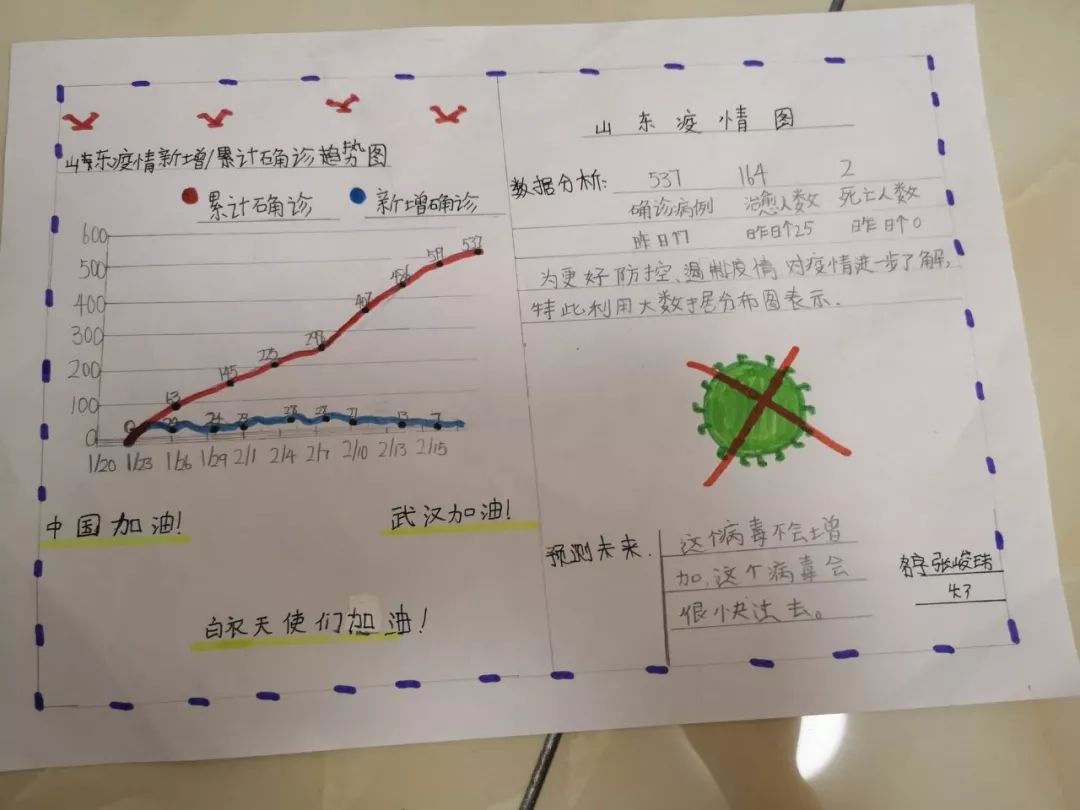 山东疫情新增/累计确诊趋势图
累计确诊 新增确诊
600
500
400
300
200
100
0
63 145 225 298 407 537
24 27 21 13 7
1/20 1/23 1/26 1/29 2/1 2/4 2/7 2/10 2/13 2/15
中国加油!
武汉加油!
白衣天使们加油!
山东疫情图
数据分析: 537 164 2
确诊病例 治愈人数 死亡人数
昨日↑7 昨日个25 昨日个0
为更好防控、遏制疫情,对疫情进一步了解,
特此利用大数据分布图表示.
预测未来.
这个病毒不会增
加,这个病毒会
很快
去。